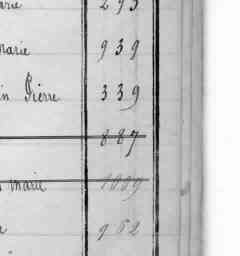 arie 293
marie 939
in Pierre 339
887
marie 1009
a 962